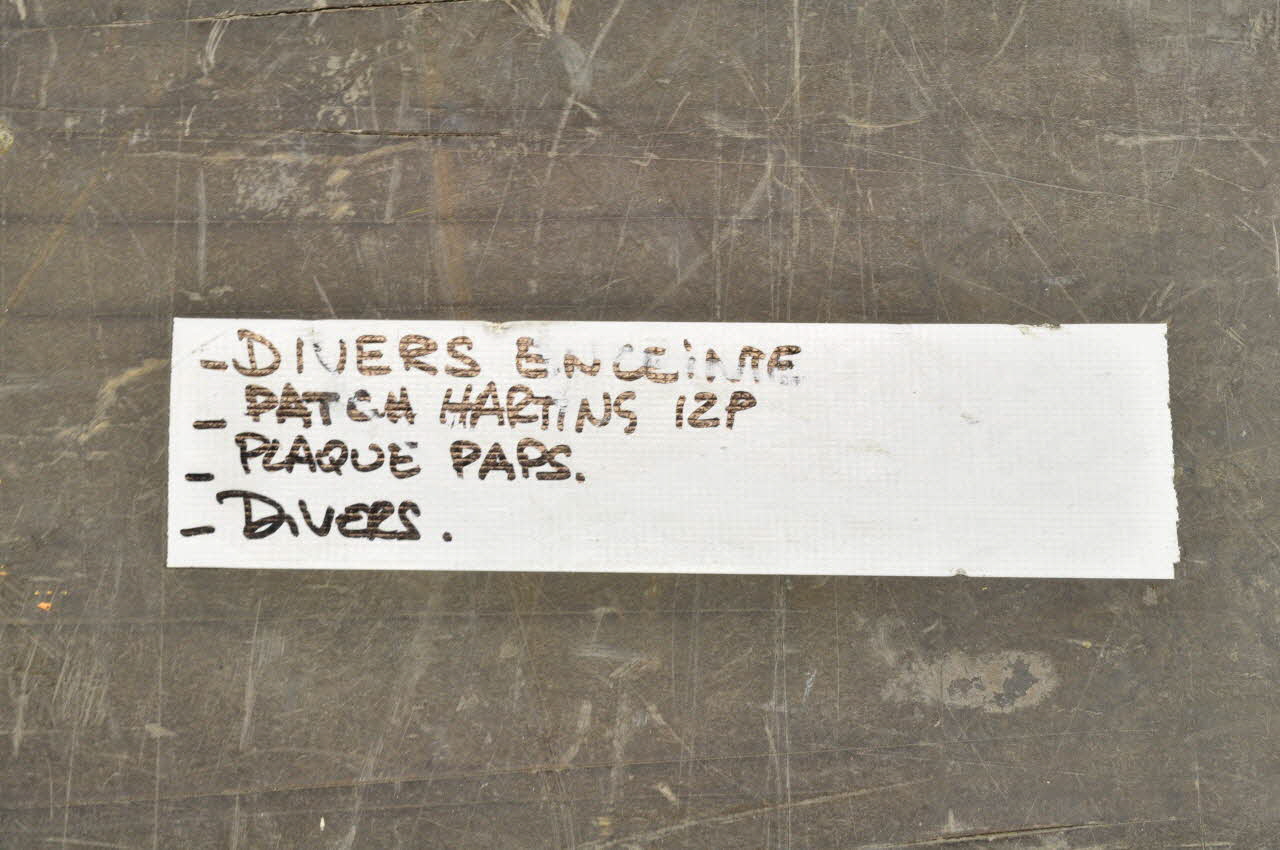 - DIVERS ENCEINTE
- PATCH HARTING 12P
- PLAQUE PAPS.
- DIVERS.